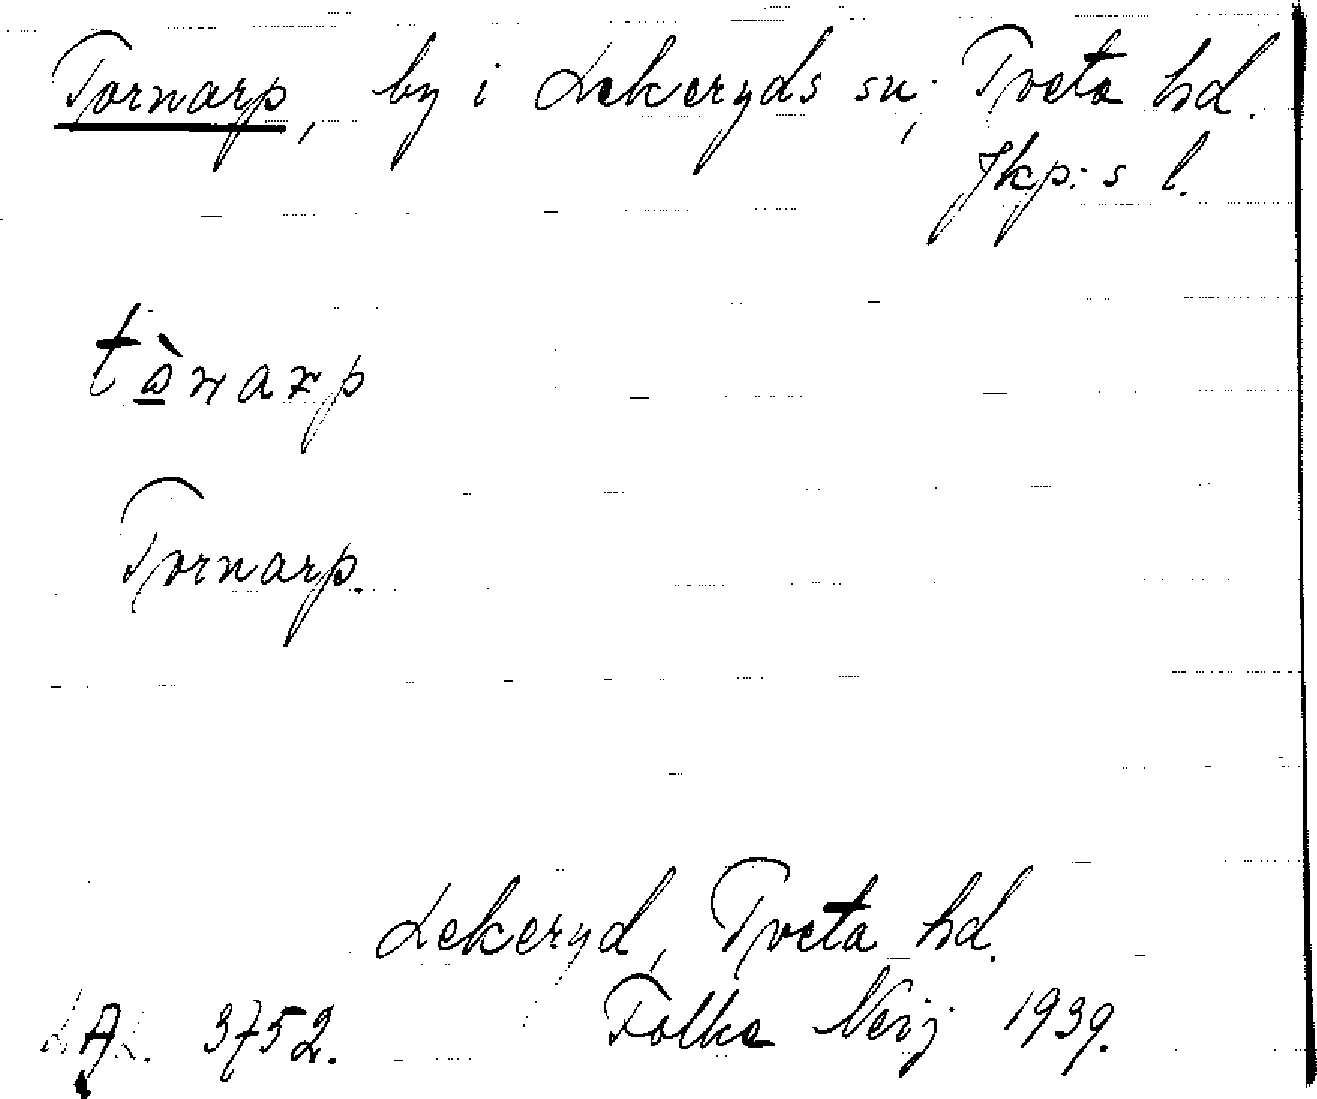 Tornarp, by i Lekeryds sn; Tveta hd.
Jkp:s l.
tònarp
Tornarp.
Lekeryd, Tveta hd.
3752. Folke Neij 1939.